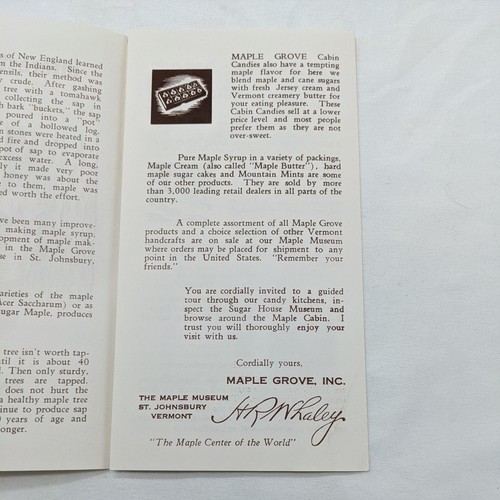 s of New England learned
m the Indians. Since the
ensils, their method was
y crude. After gashing
tree with a tomahawk
collecting the sap in
h bark "buckets," the sap
poured into a "pot"
e of a hollowed log.
n stones were heated in a
d fire and dropped into
pot of sap to evaporate
excess water. A long,
ly it made very poor
honey was about the
e to them, maple was
ed worth the effort.
ve been many improve-
making maple syrup.
opment of maple mak-
in the Maple Grove
se in St. Johnsbury,
arieties of the maple
Acer Saccharum) or as
ugar Maple, produces
tree isn't worth tap-
ntil it is about 40
d. Then only sturdy,
trees are tapped.
does not hurt the
a healthy maple tree
inue to produce sap
0 years of age and
onger.
MAPLE GROVE Cabin
Candies also have a tempting
maple flavor for here we
blend maple and cane sugars
with fresh Jersey cream and
Vermont creamery butter for
your eating pleasure. These
Cabin Candies sell at a lower
price level and most people
prefer them as they are not
over-sweet.
Pure Maple Syrup in a variety of packings,
Maple Cream (also called "Maple Butter"), hard
maple sugar cakes and Mountain Mints are some
of our other products. They are sold by more
than 3,000 leading retail dealers in all parts of the
country.
A complete assortment of all Maple Grove
products and a choice selection of other Vermont
handcrafts are on sale at our Maple Museum
where orders may be placed for shipment to any
point in the United States. "Remember your
friends."
You are cordially invited to a guided
tour through our candy kitchens, in-
spect the Sugar House Museum and
browse around the Maple Cabin. I
trust you will thoroughly enjoy your
visit with us.
Cordially yours,
MAPLE GROVE, INC.
THE MAPLE MUSEUM
ST. JOHNSBURY
VERMONT
H R Whaley
"The Maple Center of the World"